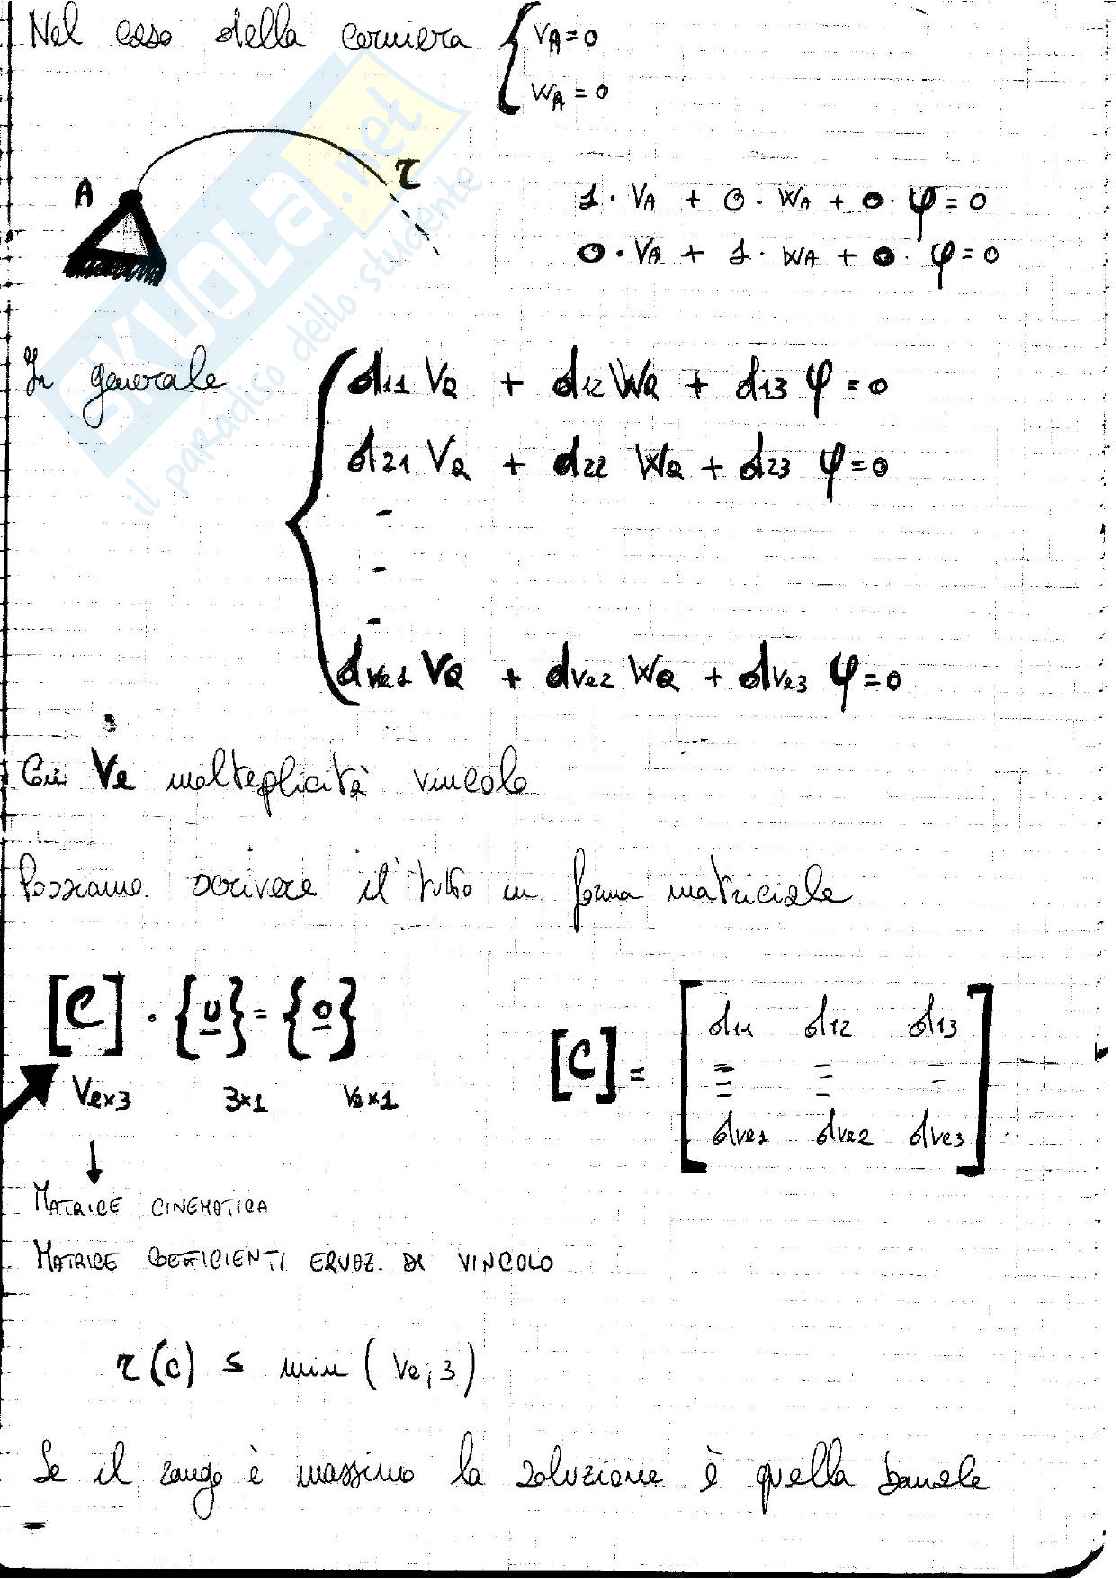 Nel caso della cerniera { VA = 0
WA = 0
A
τ
1 · VA + 0 · WA + 0 · φ = 0
0 · VA + 1 · WA + 0 · φ = 0
In generale
d11 VQ + d12 WQ + d13 φ = 0
d21 VQ + d22 WQ + d23 φ = 0
-
-
-
dve1 VQ + dve2 WQ + dve3 φ = 0
Con Ve molteplicità vincolo
Possiamo scrivere il tutto in forma matriciale
[C] · {u} = {0}
Ve×3 3×1 Ve×1
[C] = [ d11 d12 d13
dve1 dve2 dve3 ]
MATRICE CINEMATICA
MATRICE COEFFICIENTI EQUAZ. DI VINCOLO
r(C) ≤ min (Ve, 3)
Se il rango è massimo la soluzione è quella banale
SKUOLA.net
il paradiso dello studente